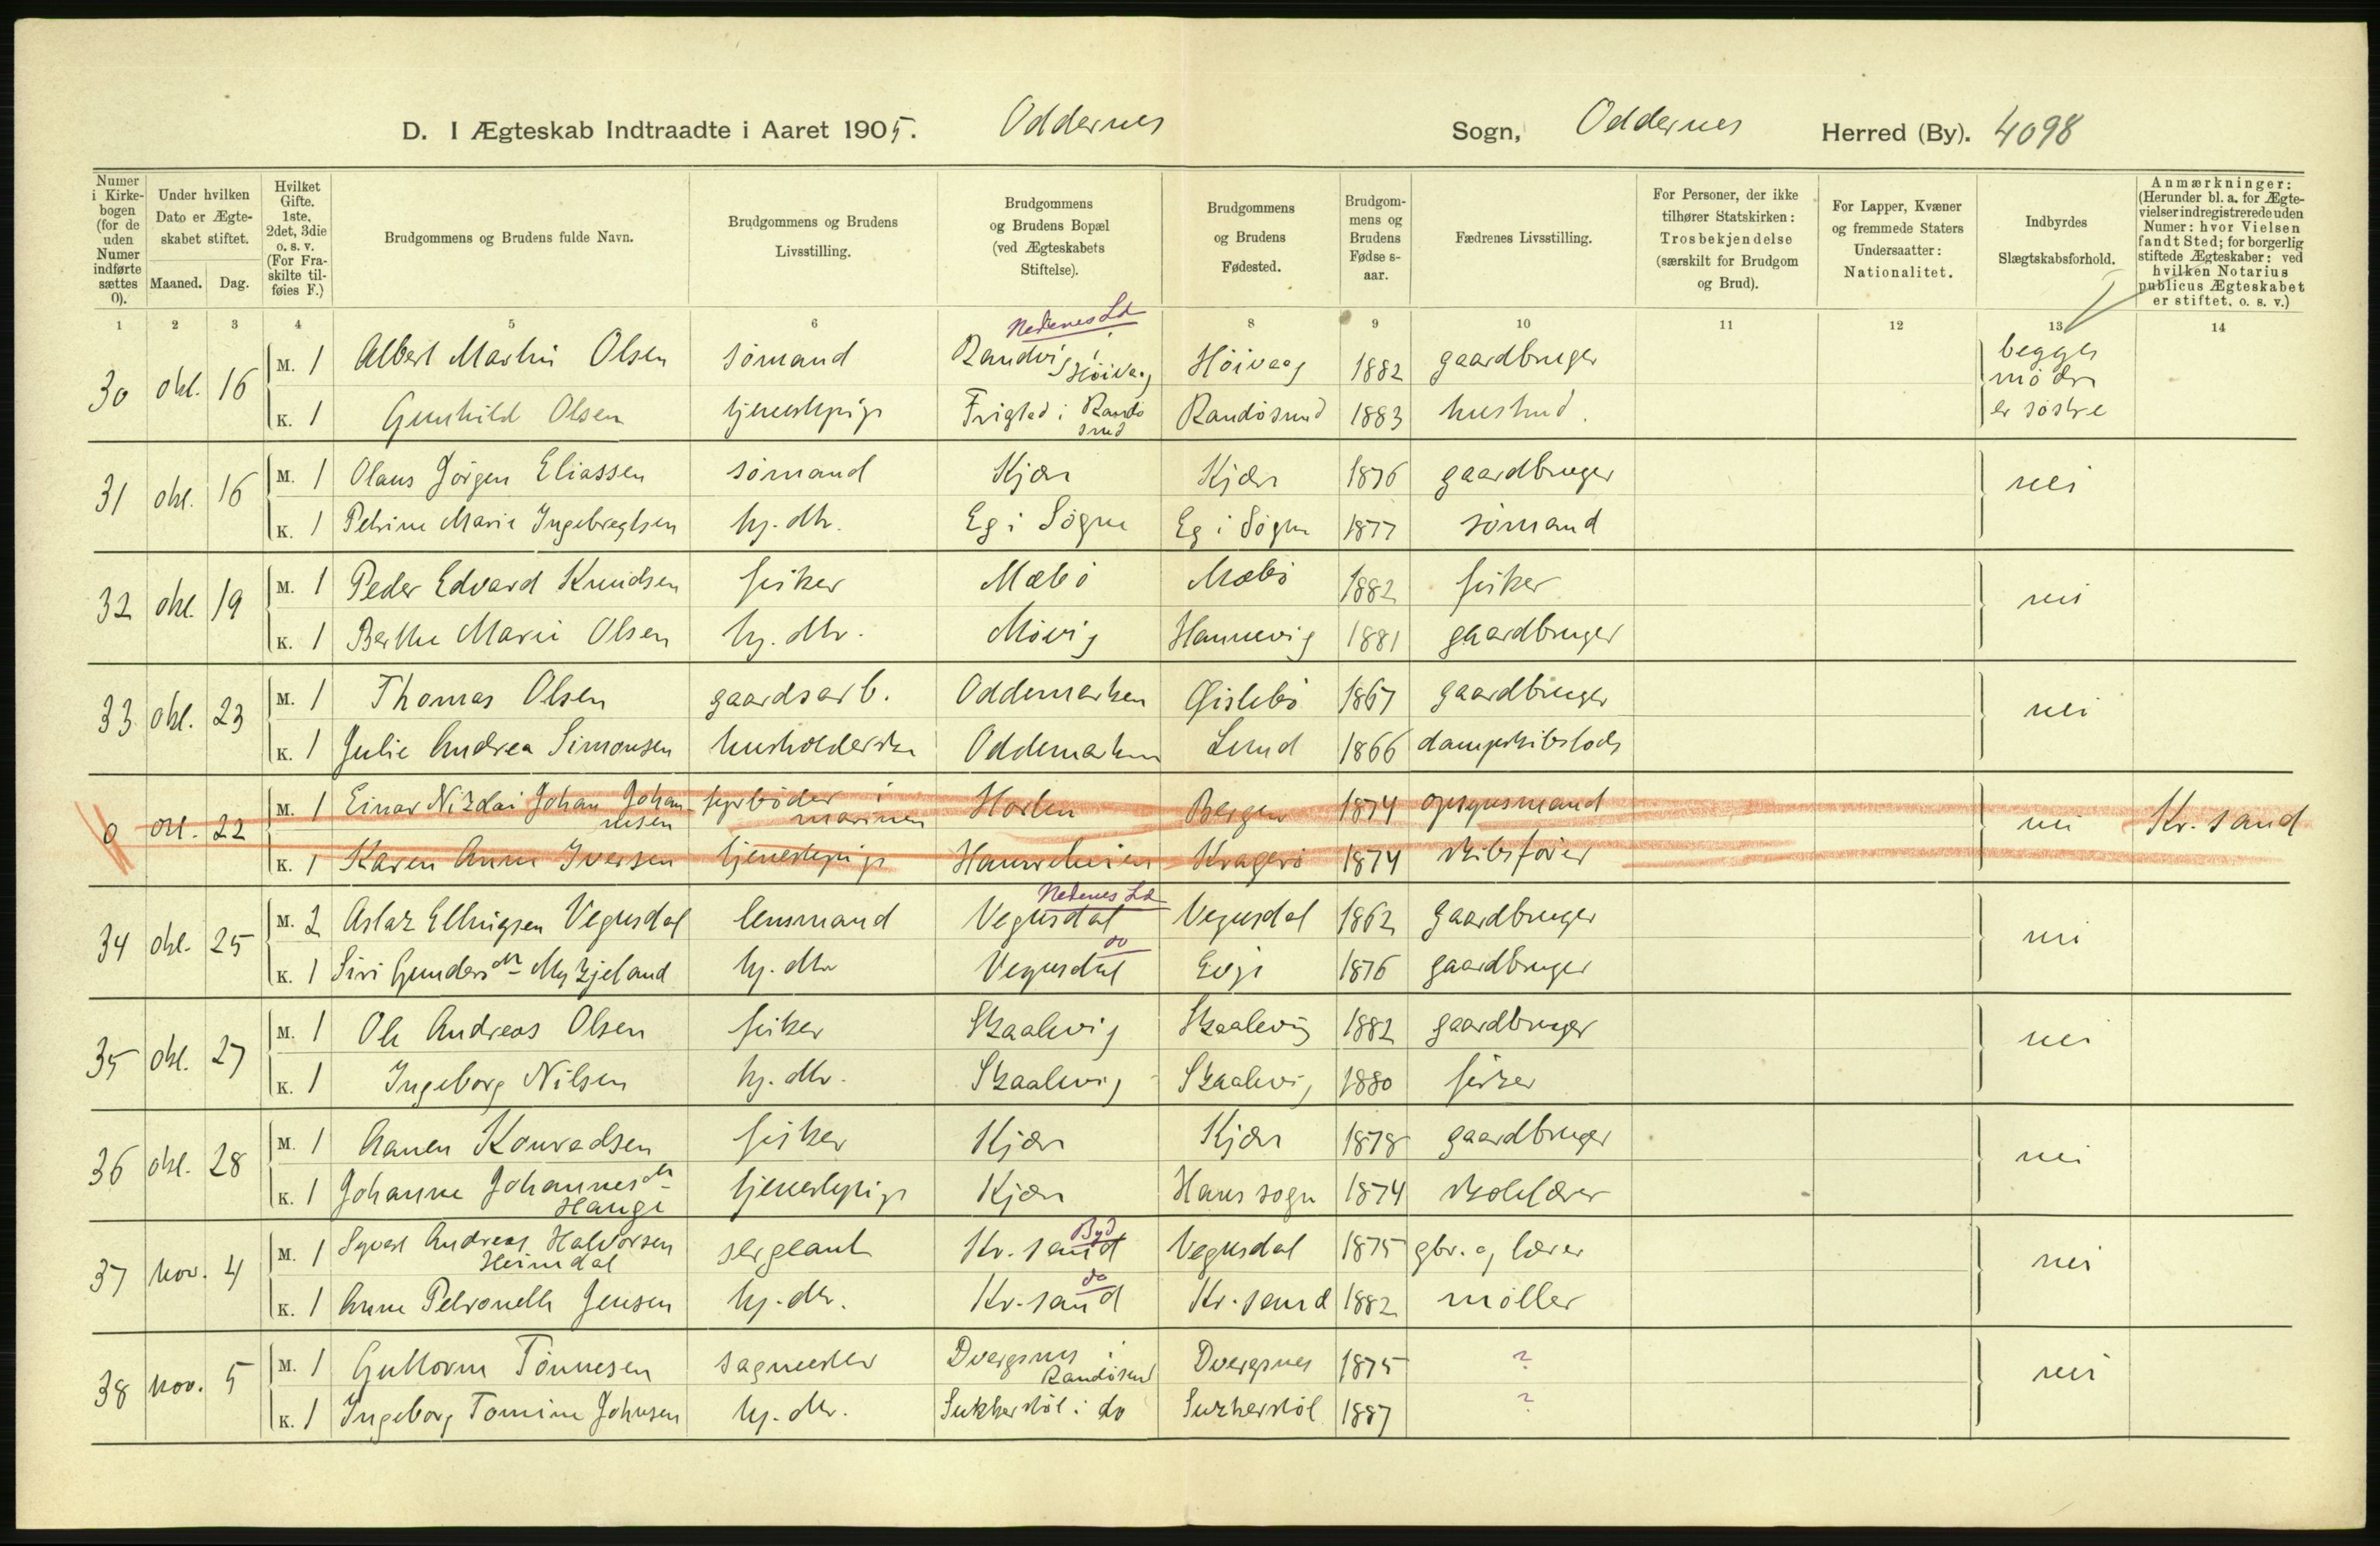 D. I Ægteskab Indtraadte i Aaret 1905. Oddernes Sogn, Oddernes Herred (By). 4098
Numer i Kirkebogen (for de uden Numer indførte sættes 0).
Under hvilken Dato er Ægteskabet stiftet.
Maaned. Dag.
Hvilket Gifte. 1ste, 2det, 3die o. s. v. (For Fraskilte tilføies F.)
Brudgommens og Brudens fulde Navn.
Brudgommens og Brudens Livsstilling.
Brudgommens og Brudens Bopæl (ved Ægteskabets Stiftelse).
Brudgommens og Brudens Fødested.
Brudgommens og Brudens Fødselsaar.
Fædrenes Livsstilling.
For Personer, der ikke tilhører Statskirken: Trosbekjendelse (særskilt for Brudgom og Brud).
For Lapper, Kvæner og fremmede Staters Undersaatter: Nationalitet.
Indbyrdes Slægtskabsforhold.
Anmærkninger: (Herunder bl. a. for Ægtevielser indregistrerede uden Numer: hvor Vielsen fandt Sted; for borgerlig stiftede Ægteskaber: ved hvilken Notarius publicus Ægteskabet er stiftet, o. s. v.)
1 2 3 4 5 6 7 8 9 10 11 12 13 14
Nedenes Ld
30 okt. 16 M. 1 Albert Martin Olsen sömand Randvig i Höivag Höivaag 1882 gaardbruger begges mödre er söstre
K. 1 Gunhild Olsen tjenestepige Frigsted i Randösund Randösund 1883 husmd.
31 okt. 16 M. 1 Olaus Jörgen Eliassen sömand Kjær Kjær 1876 gaardbruger nei
K. 1 Petrine Marie Ingebregtsen hj. dtr. Eg i Sögne Eg i Sögne 1877 sömand
32 okt. 19 M. 1 Peder Edvard Knudsen fisker Mæbö Mæbö 1882 fisker nei
K. 1 Berthe Marie Olsen hj. dtr. Mövig Hannevig 1881 gaardbruger
33 okt. 23 M. 1 Thomas Olsen gaardsarb. Oddemarken Øislebö 1867 gaardbruger nei
K. 1 Julie Andrea Simonsen husholderske Oddemarken Lund 1866 dampskibslods
0 okt. 22 M. 1 Einar Nikolai Johan Johannesen fyrböder i marinen Horten Bergen 1874 opsynsmand nei Kr.sand
K. 1 Karen Anne Iversen tjenestepige Kragerö 1874 skibsförer
Nedenes Ld
34 okt. 25 M. 2 Aslak Ellingsen Vegusdal lensmand Vegusdal Vegusdal 1862 gaardbruger nei
do
K. 1 Siri Gundersdtr Mykjeland hj. dtr Vegusdal Evje 1876 gaardbruger
35 okt. 27 M. 1 Ole Andreas Olsen fisker Skaalevig Skaalevig 1882 gaardbruger nei
K. 1 Ingeborg Nilsen hj. dtr. Skaalevig Skaalevig 1880 fisker
36 okt. 28 M. 1 Aanen Konradsen fisker Kjær Kjær 1878 gaardbruger nei
K. 1 Johanne Johannesdtr Hauge tjenestepige Kjær Haus sogn 1874 skolelærer
Byd
37 nov. 4 M. 1 Syvert Andreas Halvorsen Heimdal sergeant Kr.sand Vegusdal 1875 gbr. og lærer nei
do
K. 1 Anne Petronelle Jensen hj. dtr. Kr.sand Kr.sand 1882 möller
38 nov. 5 M. 1 Guttorm Tönnesen sagmester Dvergsnes i Randösund Dvergsnes 1875 ? nei
K. 1 Ingeborg Tomine Johnsen hj. dtr. Sukkerstöl i do Sukkerstöl 1887 ?